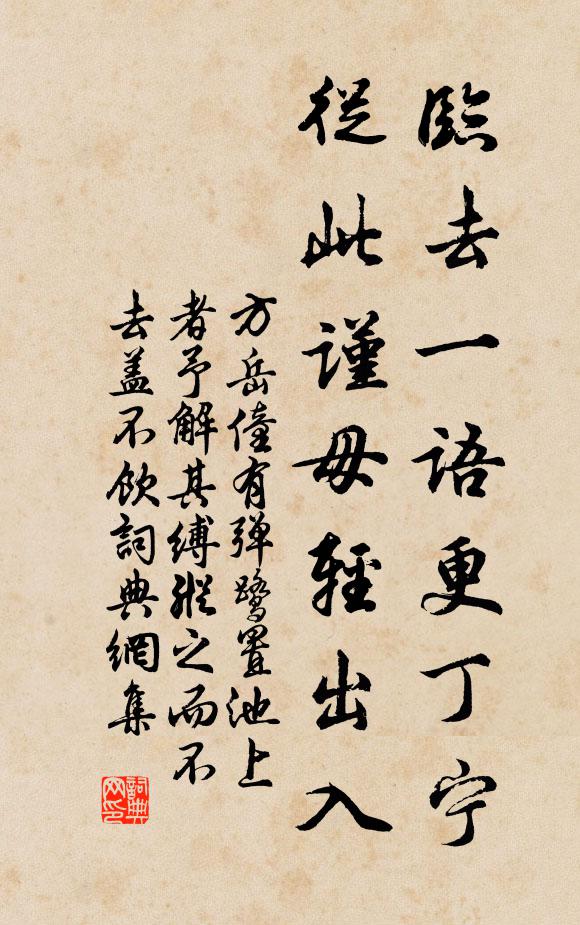 臨去一語更丁宁
從此謹毋輕出入
方岳僮有弹鹭置池上
者予解其缚縱之而不
去盖不飲詞典網集
詞典
网印